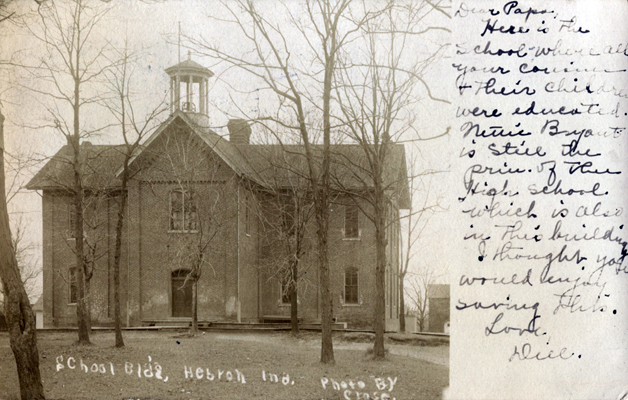 Dear Papa,
Here is the
School where all
your cousins
+ their children
were educated.
Nettie Bryant
is still the
prin. of the
High School
which is also
in this building
I thought you
would enjoy
saving this.
Love.
School Bldg, Hebron Ind.
Photo By